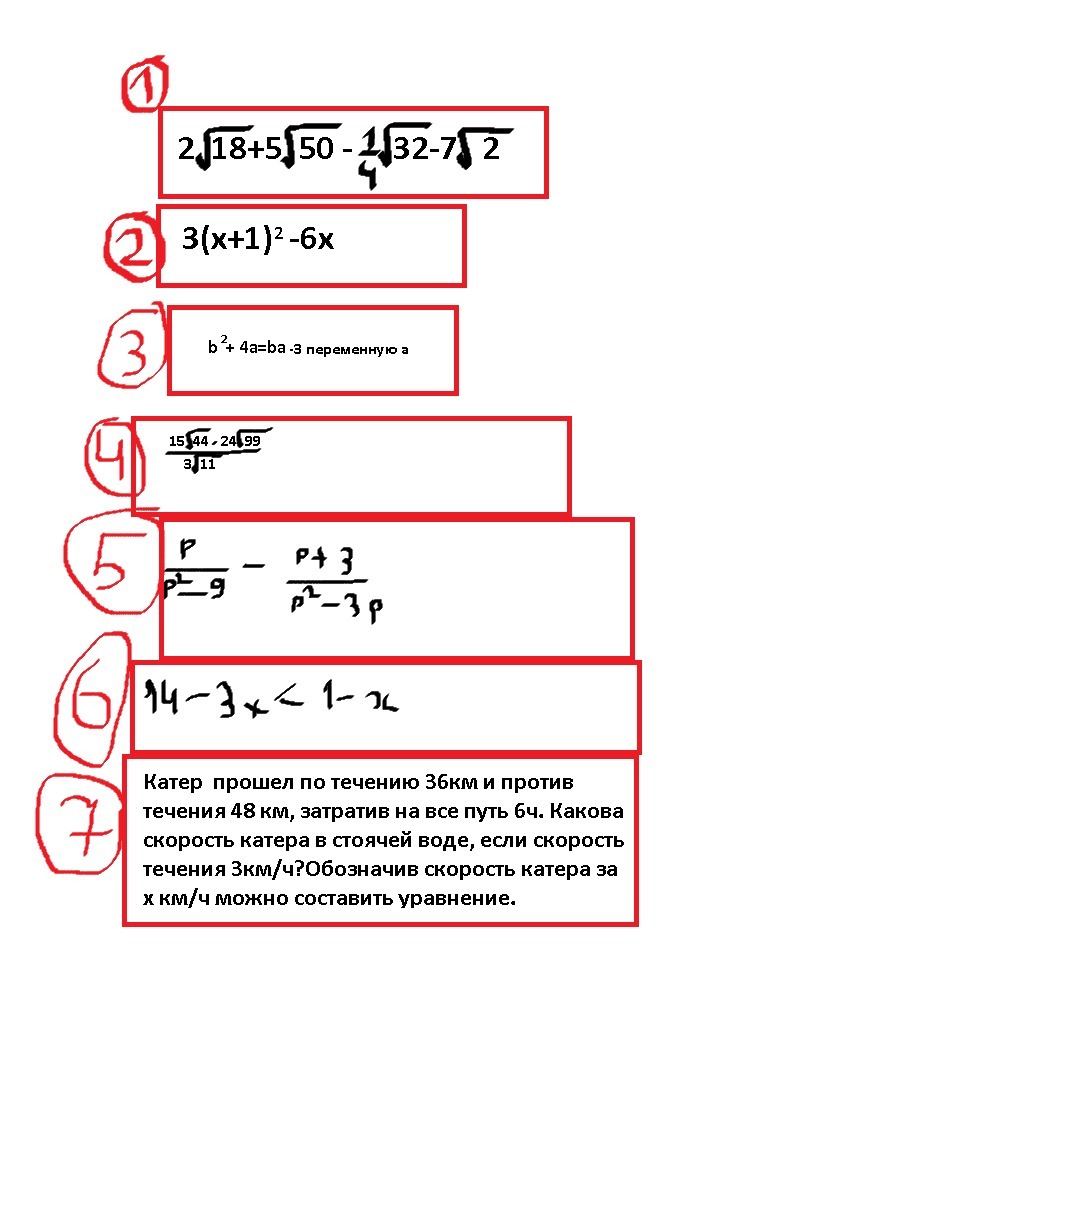 1
2√18+5√50 - 1/4√32-7√2
2
3(x+1)² -6x
3
b²+ 4a=ba -3 переменную а
4
15√44 - 24√99
3√11
5
p/(p²-9) - (p+3)/(p²-3p)
6
14-3x< 1-x
7
Катер прошел по течению 36км и против
течения 48 км, затратив на все путь 6ч. Какова
скорость катера в стоячей воде, если скорость
течения 3км/ч?Обозначив скорость катера за
х км/ч можно составить уравнение.